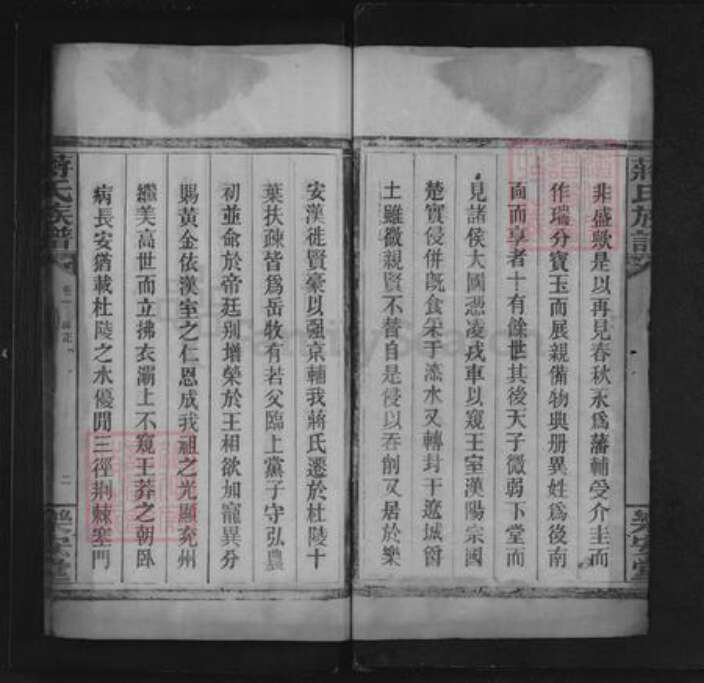 蔣氏族譜
樂安堂
非盛歟是以再見春秋永爲藩輔受介圭而
作瑞分寶玉而展親備物典册異姓爲後南
面而享者十有餘世其後天子微弱下堂而
見諸侯大國憑凌戎車以窺王室漢陽宗國
楚實侵併旣食采于 水又轉封于遼城爵
土雖微親賢不替自是侵以吞削又居於樂
安漢徙賢豪以强京輔我蔣氏遷於杜陵十
葉扶疎皆爲岳牧有若父臨上黨子守弘農
初並命於帝廷别增榮於王相欲加寵異分
賜黃金依漢室之仁恩成我祖之光顯兖州
繼美高世而立拂衣灞上不窺王莽之朝卧
病長安猶載杜陵之水優閒三徑荆棘塞門
蔣氏族譜
卷一
二
樂安堂